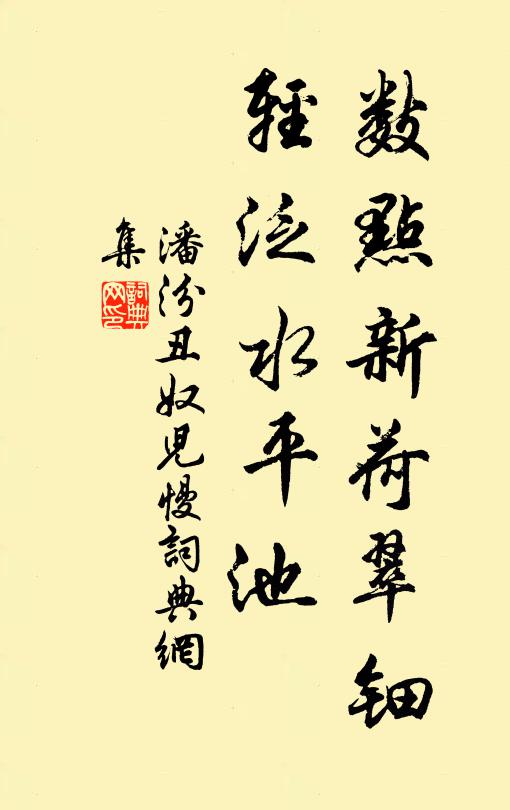 數點新荷翠鈿
輕泛水平池
潘汾丑奴兒慢詞典網
集
詞典
网印